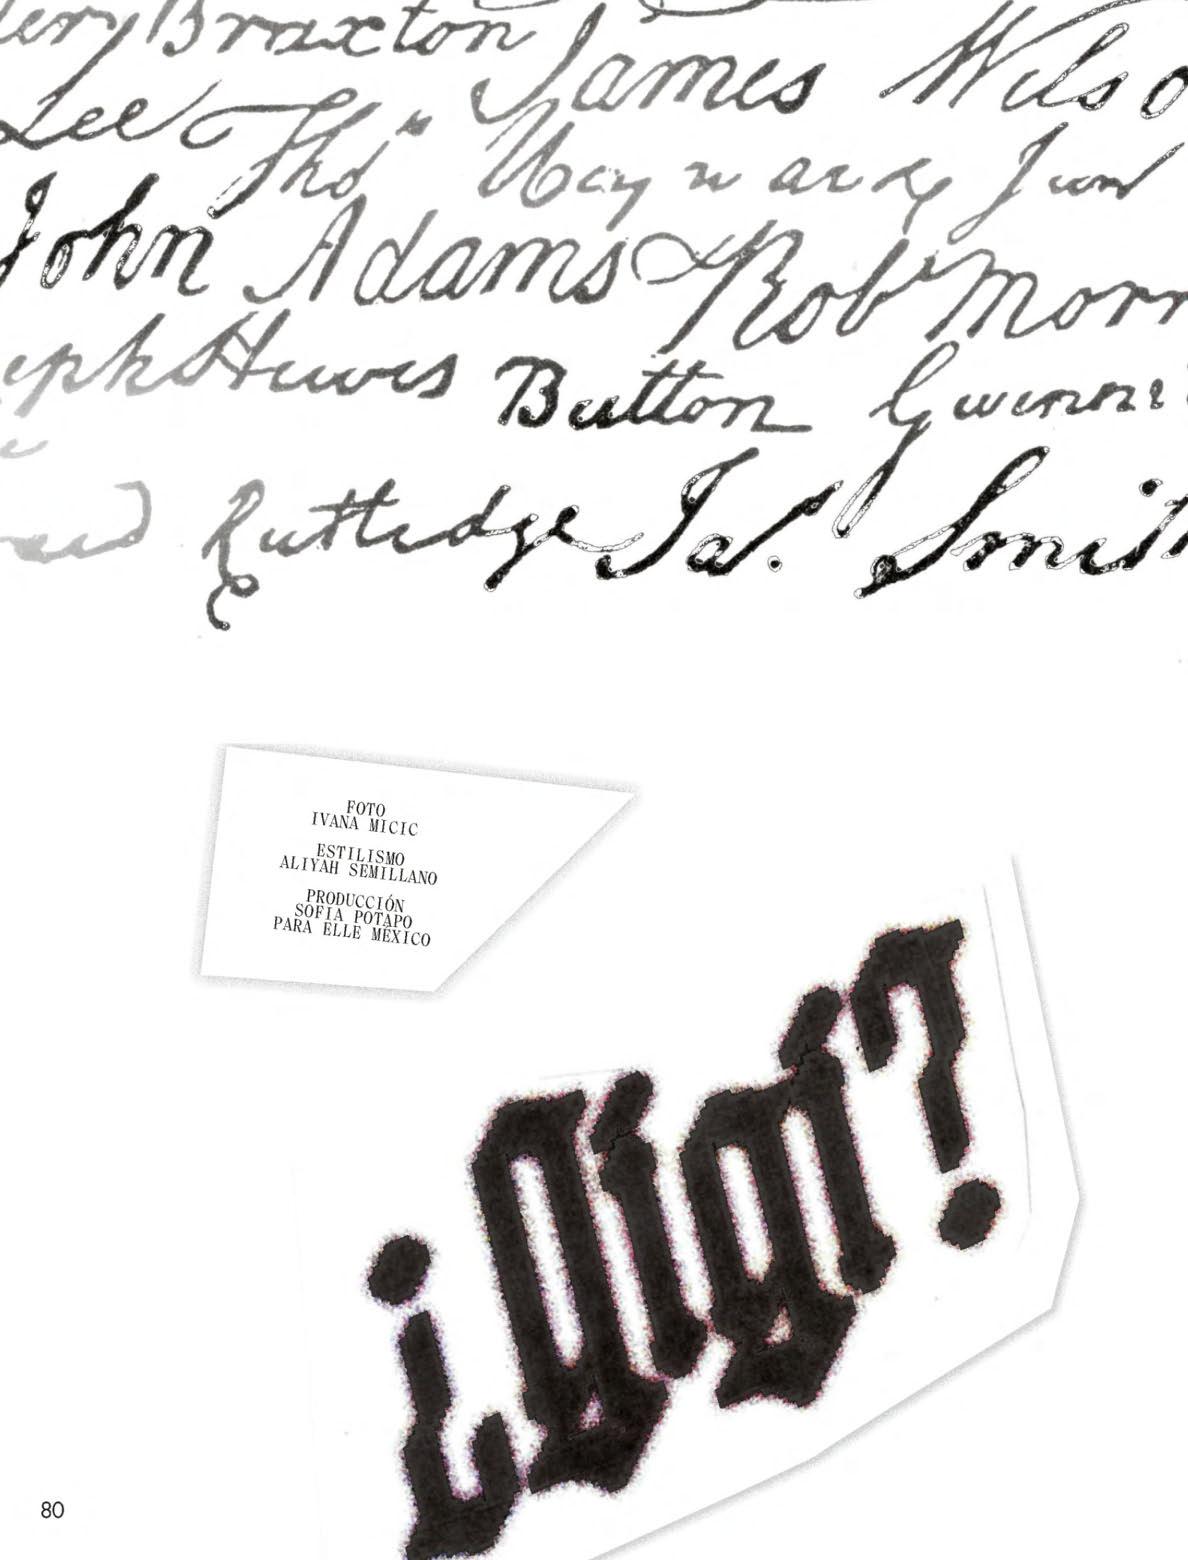 Braxton
James Wilso
Lee Tho^s Heyward Jun
John Adams Rob^t Morr
eph Hewes Button Gwinn
Rutledge Ja^s. Smit
FOTO
IVANA MICIC
ESTILISMO
ALIYAH SEMILLANO
PRODUCCIÓN
SOFIA POTAPO
PARA ELLE MÉXICO
¿gigi?
80